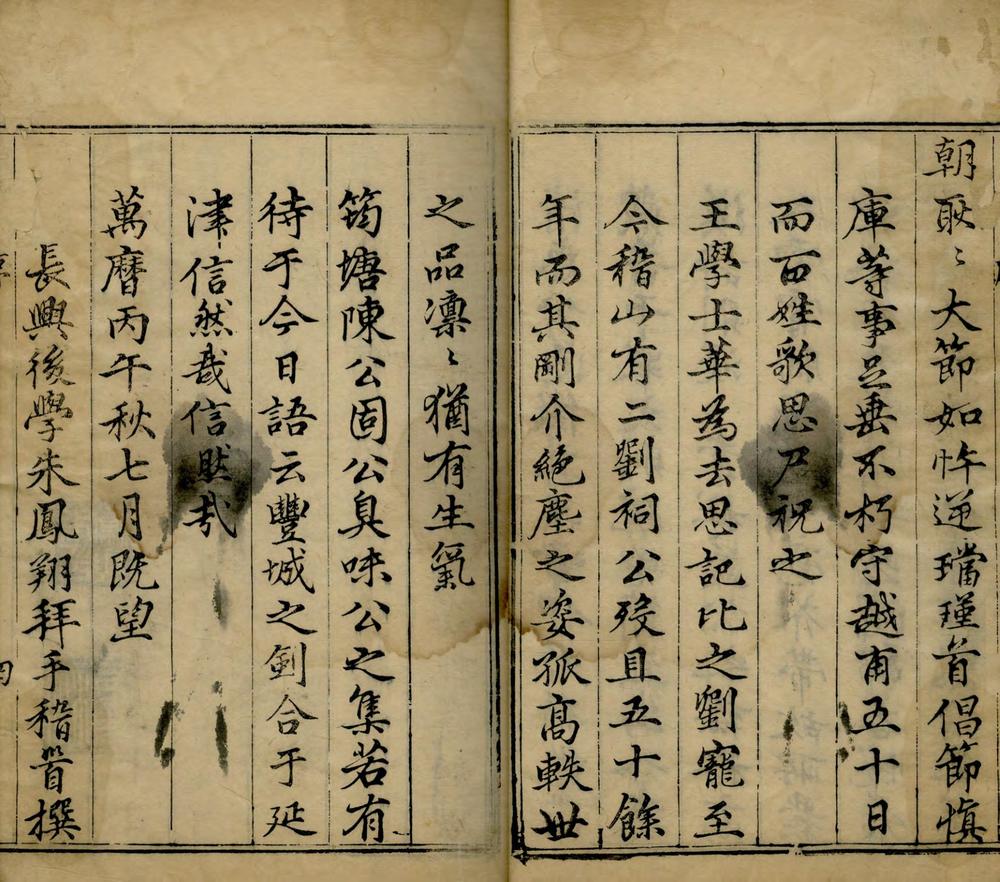 朝耿〻大節如忤逆璫瑾首倡節慎
庫等事足垂不朽守越甫五十日
而百姓歌思尸祝之
王學士華為去思記比之劉寵至
今稽山有二劉祠公歿且五十餘
年而其剛介絕塵之姿孤高軼世
之品凛〻猶有生氣
筠塘陳公固公臭味公之集若有
待于今日語云豐城之劍合于延
津信然哉信然哉
萬曆丙午秋七月既望
長興後學朱鳳翔拜手稽首撰